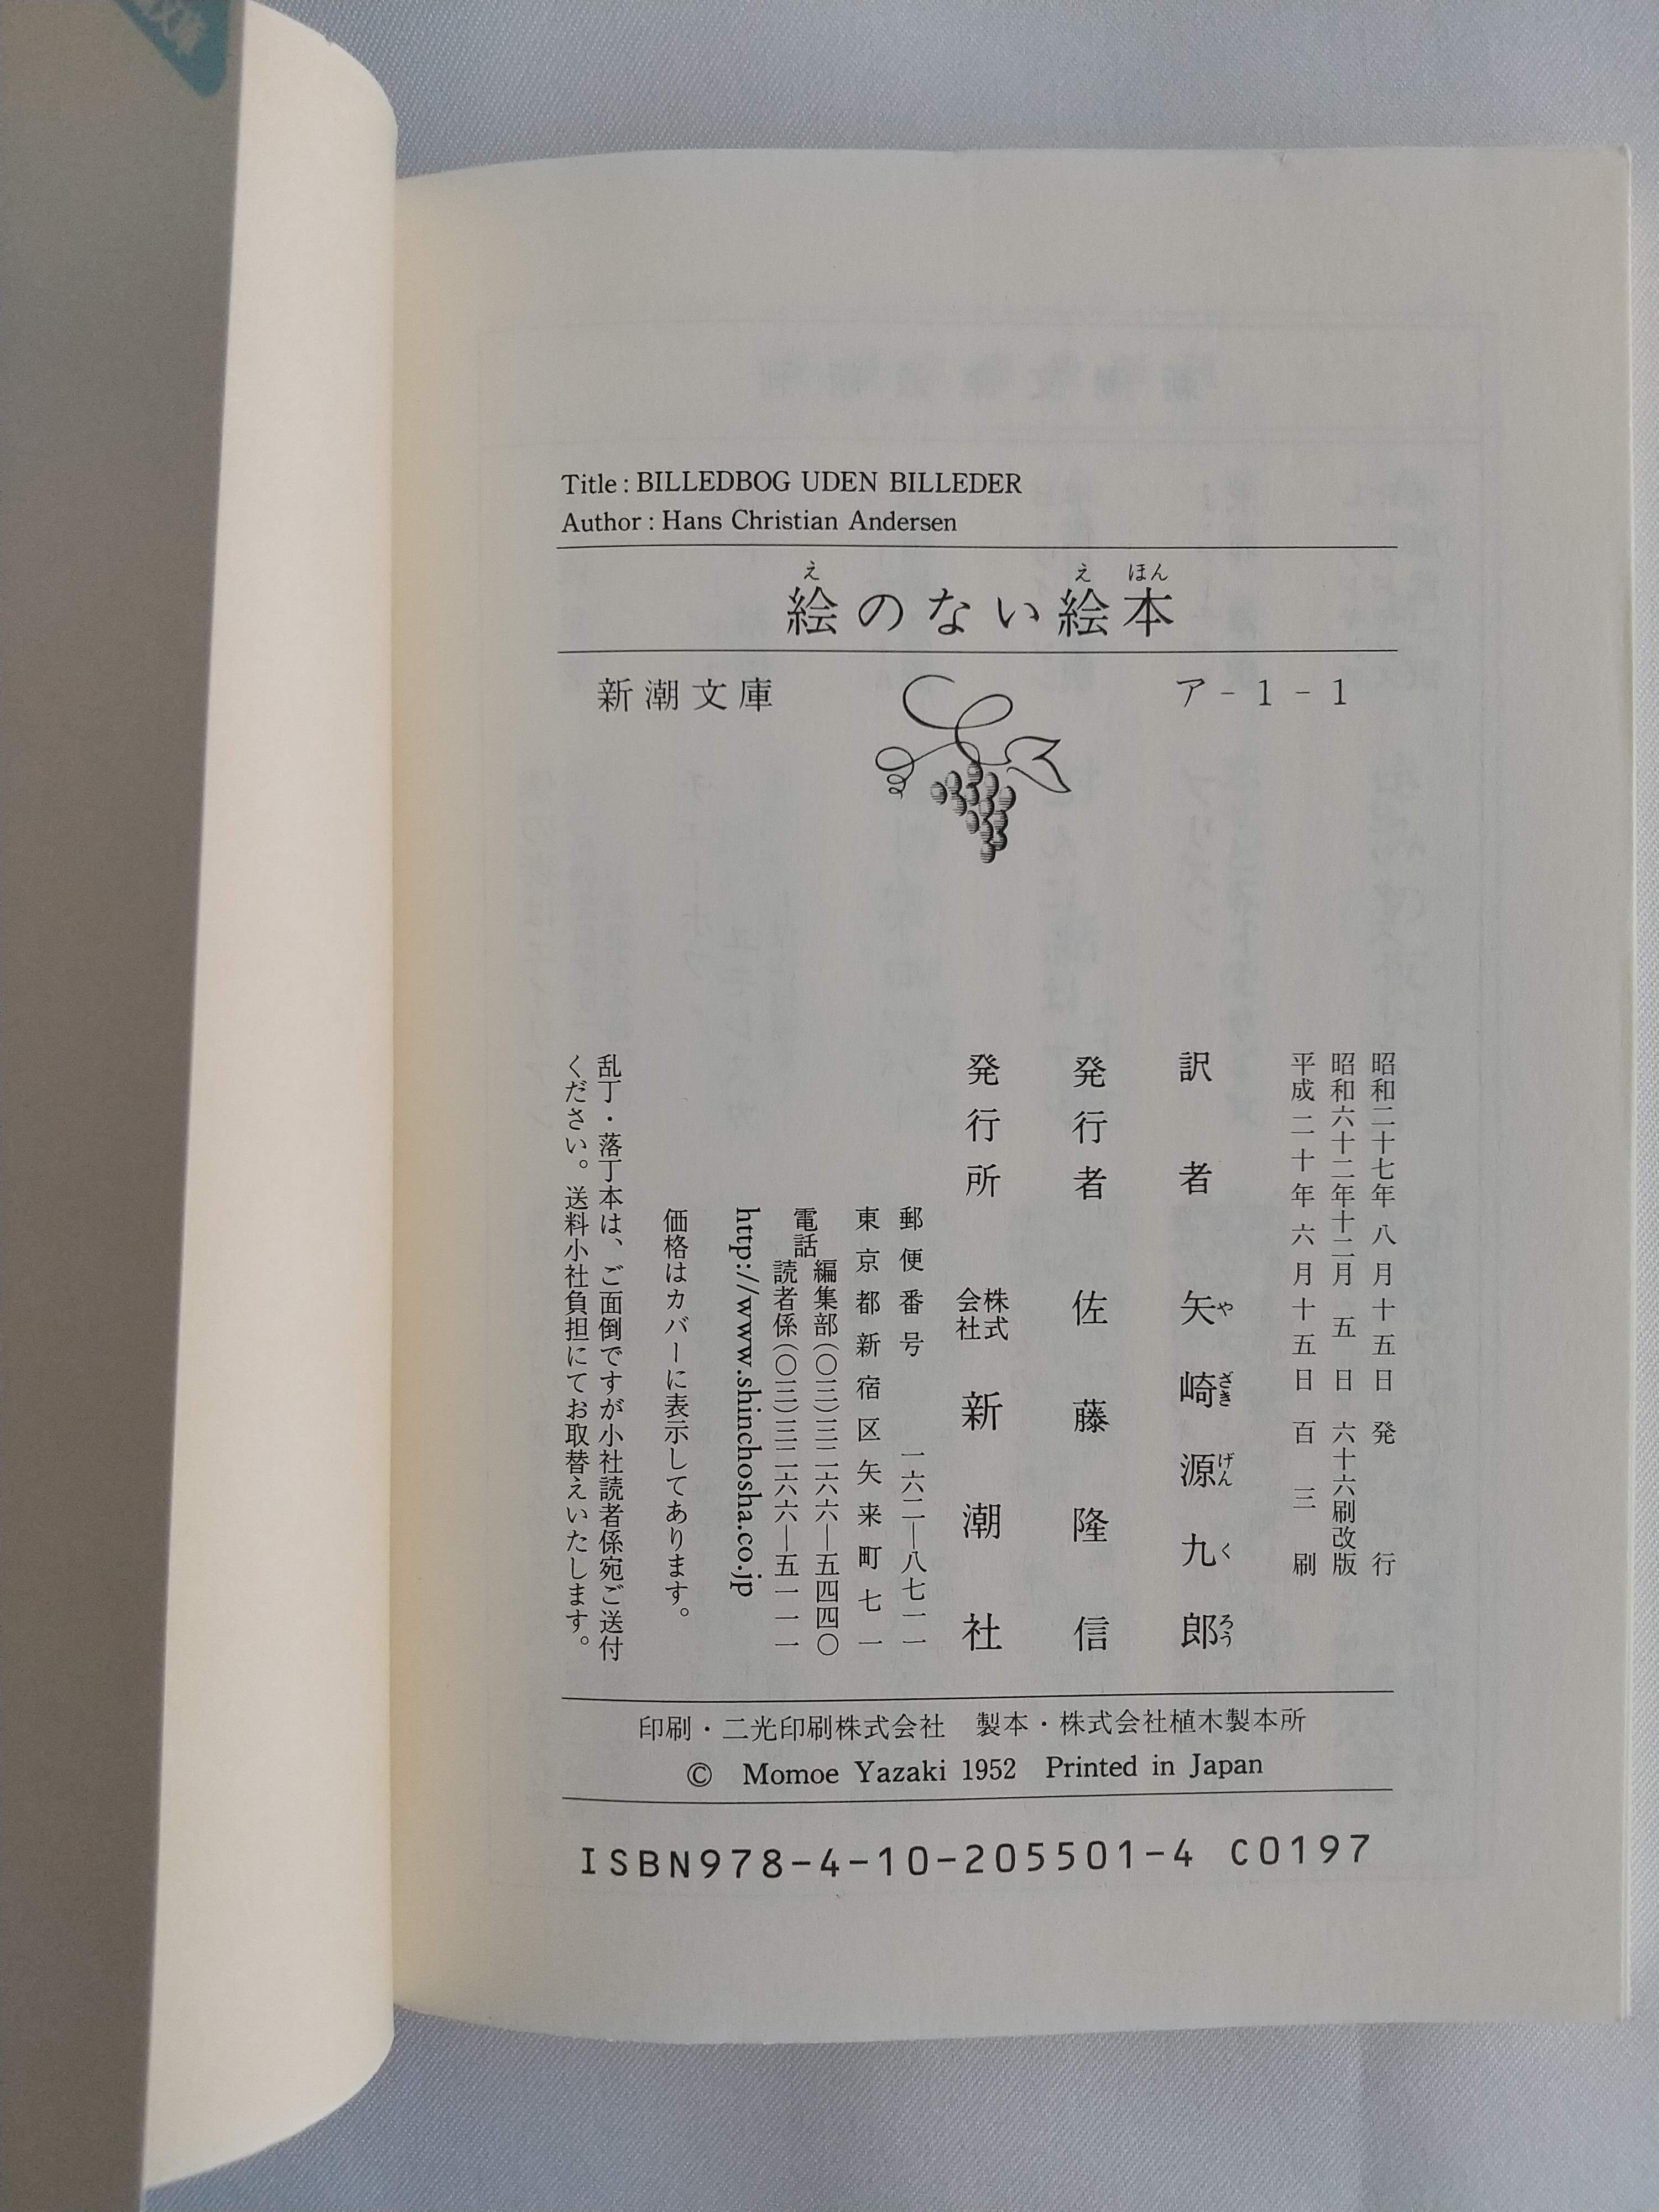 Title : BILLEDBOG UDEN BILLEDER
Author : Hans Christian Andersen
絵のない絵本
新潮文庫
ア - 1 - 1
昭和二十七年 八月十五日 発行
昭和六十二年十二月 五日 六十六刷改版
平成二十年 六月十五日 百三刷
訳者 矢崎源九郎
発行者 佐藤隆信
発行所 株式会社 新潮社
郵便番号 一六二―八七一一
東京都新宿区矢来町七一
電話 編集部(〇三)三二六六―五四四〇
読者係(〇三)三二六六―五一一一
http://www.shinchosha.co.jp
価格はカバーに表示してあります。
乱丁・落丁本は、ご面倒ですが小社読者係宛ご送付
ください。送料小社負担にてお取替えいたします。
印刷・二光印刷株式会社 製本・株式会社植木製本所
© Momoe Yazaki 1952 Printed in Japan
ISBN978-4-10-205501-4 C0197